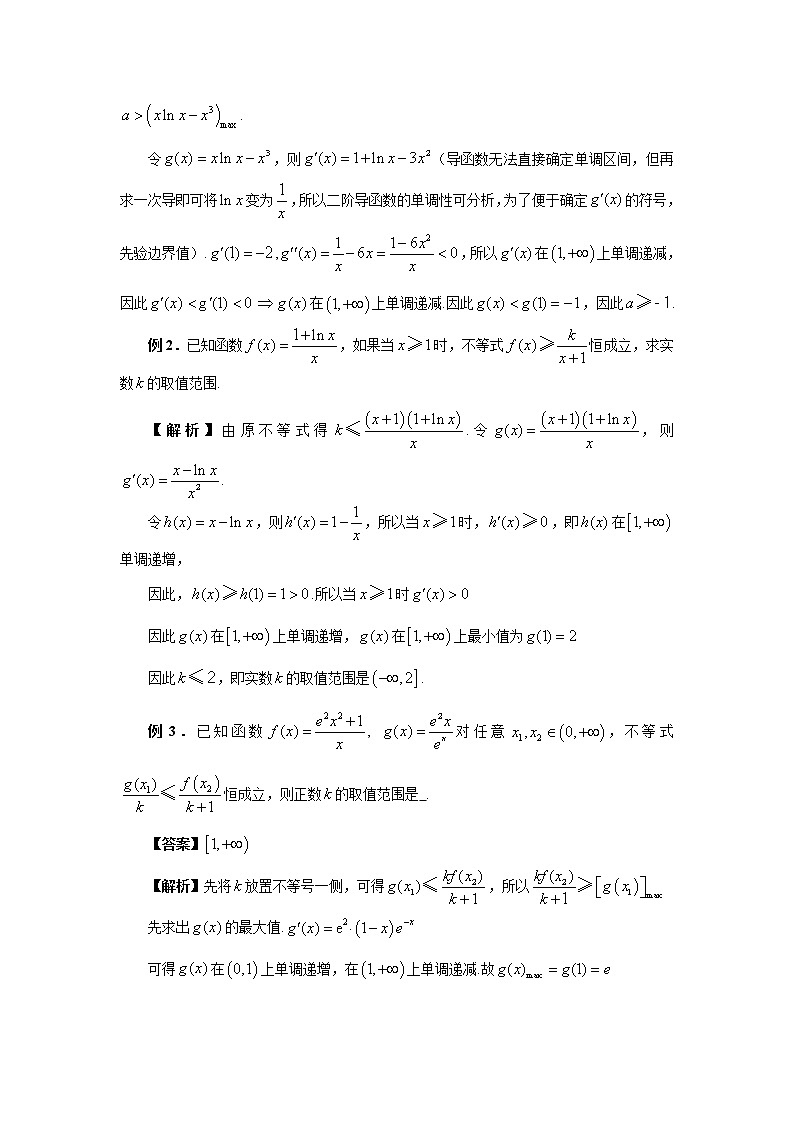 a > (x ln x − x³)max .
令 g(x) = x ln x − x³ , 则 g′(x) = 1+ln x − 3x² (导函数无法直接确定单调区间, 但再
求一次导即可将 ln x 变为 1/x ,所以二阶导函数的单调性可分析,为了便于确定 g′(x) 的符号,
先验边界值) . g′(1) = −2 , g′′(x) = 1/x − 6x = (1 − 6x²)/x < 0 ,所以 g′(x) 在 (1,+∞) 上单调递减,
因此 g′(x) < g′(1) < 0 ⇒ g(x) 在 (1,+∞) 上单调递减.因此 g(x) < g(1) = −1 , 因此 a ⩾ - 1 .
例 2. 已知函数 f(x) = (1+ln x)/x , 如果当 x ⩾ 1 时, 不等式 f(x) ⩾ k/(x+1) 恒成立, 求实
数 k 的取值范围.
【解析】由原不等式得 k ⩽ (x+1)(1+ln x)/x . 令 g(x) = (x+1)(1+ln x)/x , 则
g′(x) = (x − ln x)/x² .
令 h(x) = x − ln x , 则 h′(x) = 1 − 1/x , 所以当 x ⩾ 1 时, h′(x) ⩾ 0 , 即 h(x) 在 [1,+∞)
单调递增,
因此, h(x) ⩾ h(1) = 1 > 0 .所以当 x ⩾ 1 时 g′(x) > 0
因此 g(x) 在 [1,+∞) 上单调递增, g(x) 在 [1,+∞) 上最小值为 g(1) = 2
因此 k ⩽ 2 , 即实数 k 的取值范围是 (−∞,2] .
例 3. 已知函数 f(x) = (e²x²+1)/x , g(x) = e²x/eˣ 对任意 x₁,x₂ ∈ (0,+∞) , 不等式
g(x₁)/k ⩽ f(x₂)/(k+1) 恒成立, 则正数 k 的取值范围是_.
【答案】[1,+∞)
【解析】先将 k 放置不等号一侧, 可得 g(x₁) ⩽ kf(x₂)/(k+1) , 所以 kf(x₂)/(k+1) ⩾ [g(x₁)]max
先求出 g(x) 的最大值. g′(x) = e²·(1−x)e⁻ˣ
可得 g(x) 在 (0,1) 上单调递增, 在 (1,+∞) 上单调递减.故 g(x)max = g(1) = e